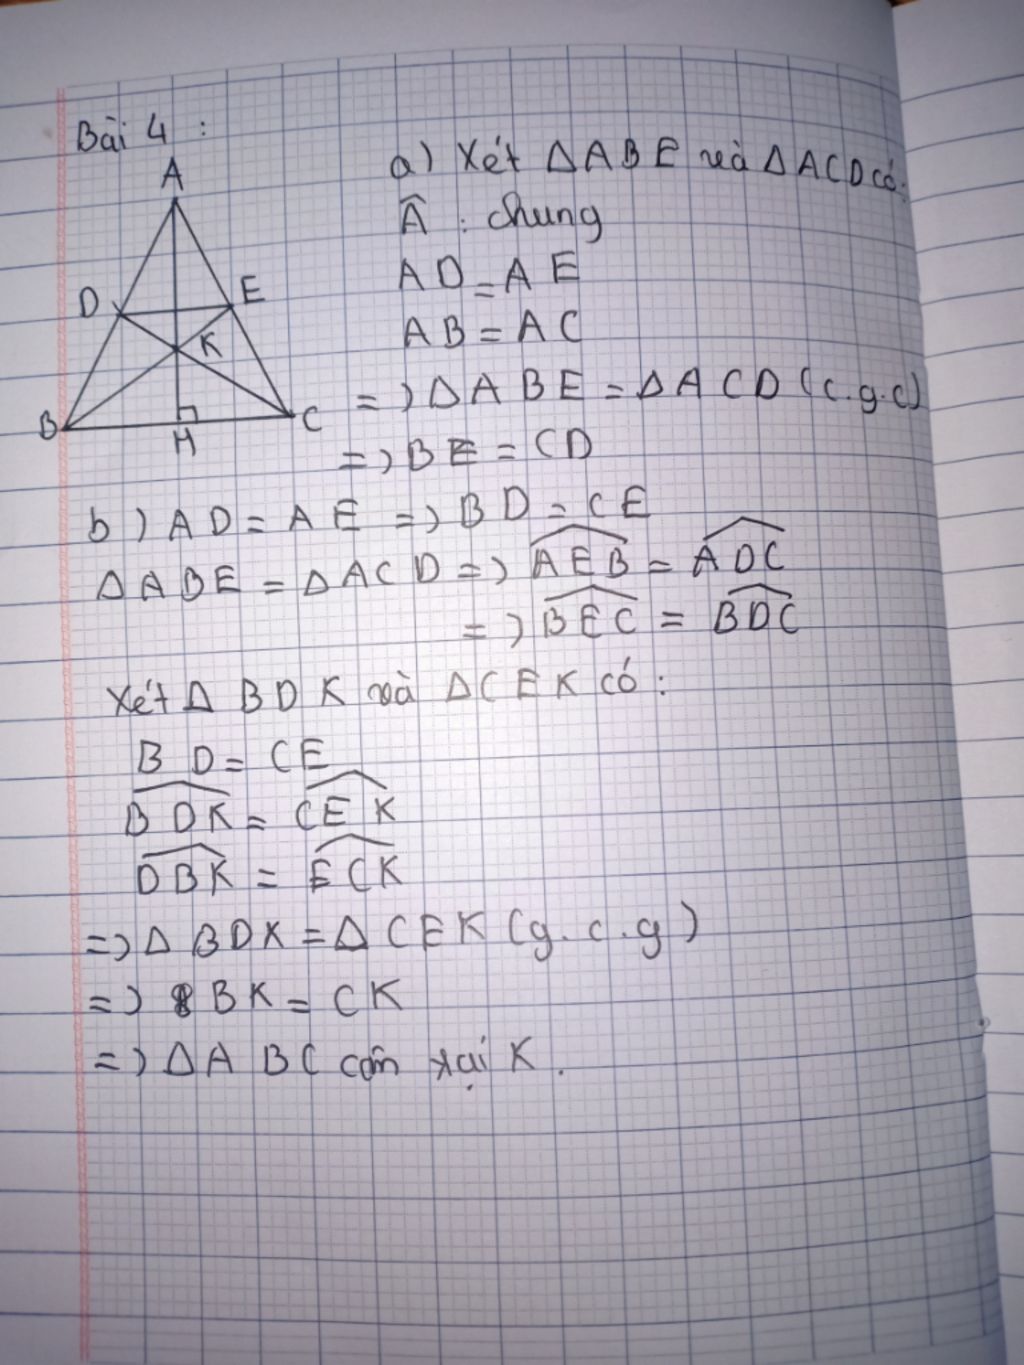 Bài 4 :
A
D
E
K
B
C
H
a) Xét ΔABE và ΔACD có:
Â : chung
AD = AE
AB = AC
=> ΔABE = ΔACD (c.g.c)
=> BE = CD
b) AD = AE => BD = CE
ΔABE = ΔACD => \widehat{AEB} = \widehat{ADC}
=> \widehat{BEC} = \widehat{BDC}
Xét ΔBDK và ΔCEK có :
BD = CE
\widehat{BDK} = \widehat{CEK}
\widehat{DBK} = \widehat{ECK}
=> ΔBDK = ΔCEK (g.c.g)
=> BK = CK
=> ΔABC cân tại K .